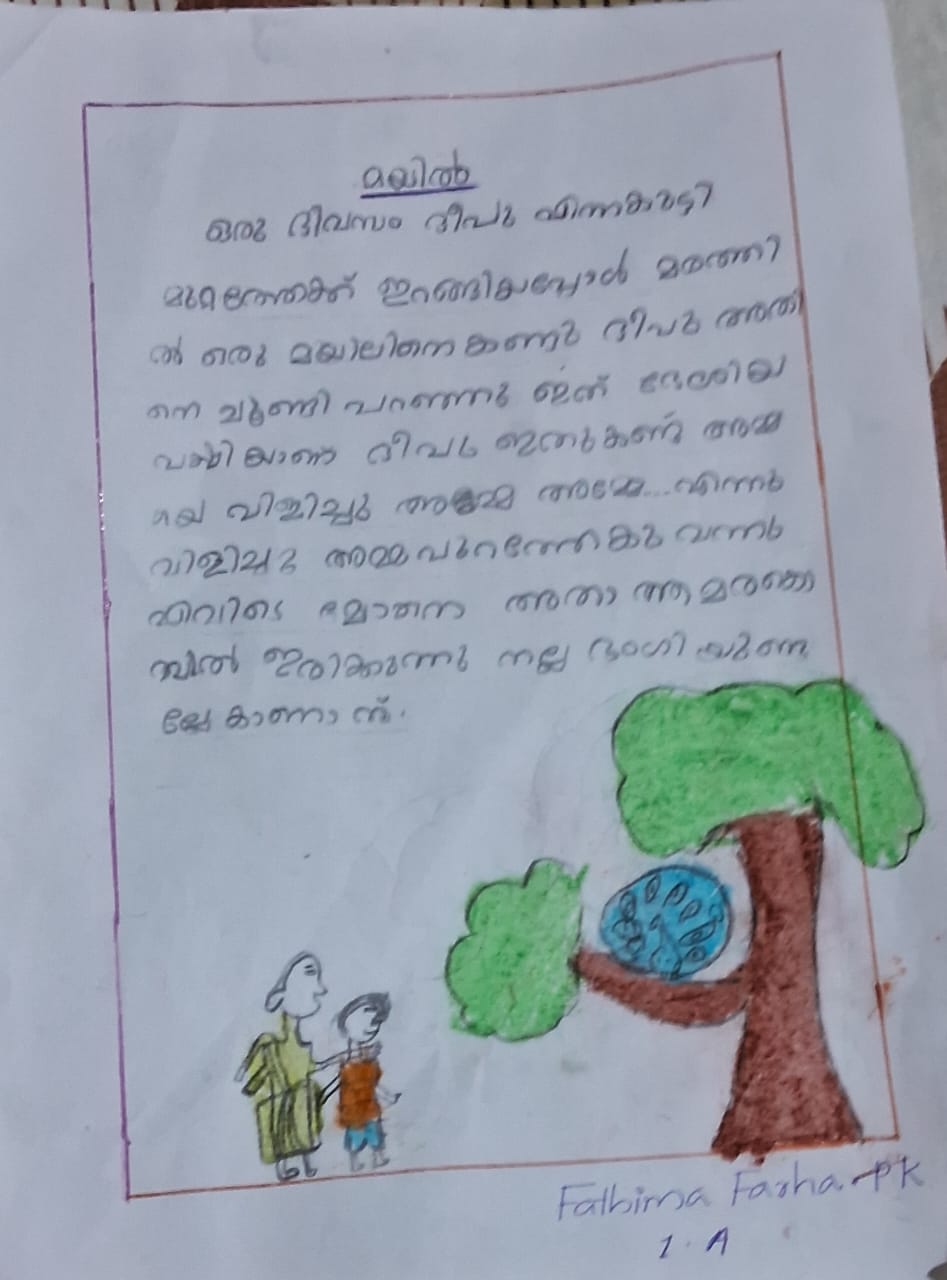 മയിൽ
ഒരു ദിവസം ദീപു എന്നകുട്ടി
മുറ്റത്തേക്ക് ഇറങ്ങിയപ്പോൾ മരത്തി
ൽ ഒരു മയിലിനെ കണ്ടു ദീപു അതി
നെ ചൂണ്ടി പറഞ്ഞു ഇത് ദേശിയ
പക്ഷിയാണ് ദീപു ഇതുകണ്ട് അമ്മ
യെ വിളിച്ചു അമ്മേ അമ്മേ... എന്നു
വിളിച്ചു അമ്മ പുറത്തേക്കു വന്നു
എവിടെ മോനെ അതാ ആ മരക്കൊ
മ്പിൽ ഇരിക്കുന്നു നല്ല ഭംഗിയുണ്ട
ല്ലേ കാണാൻ.
Fathima Farha. PK
1. A